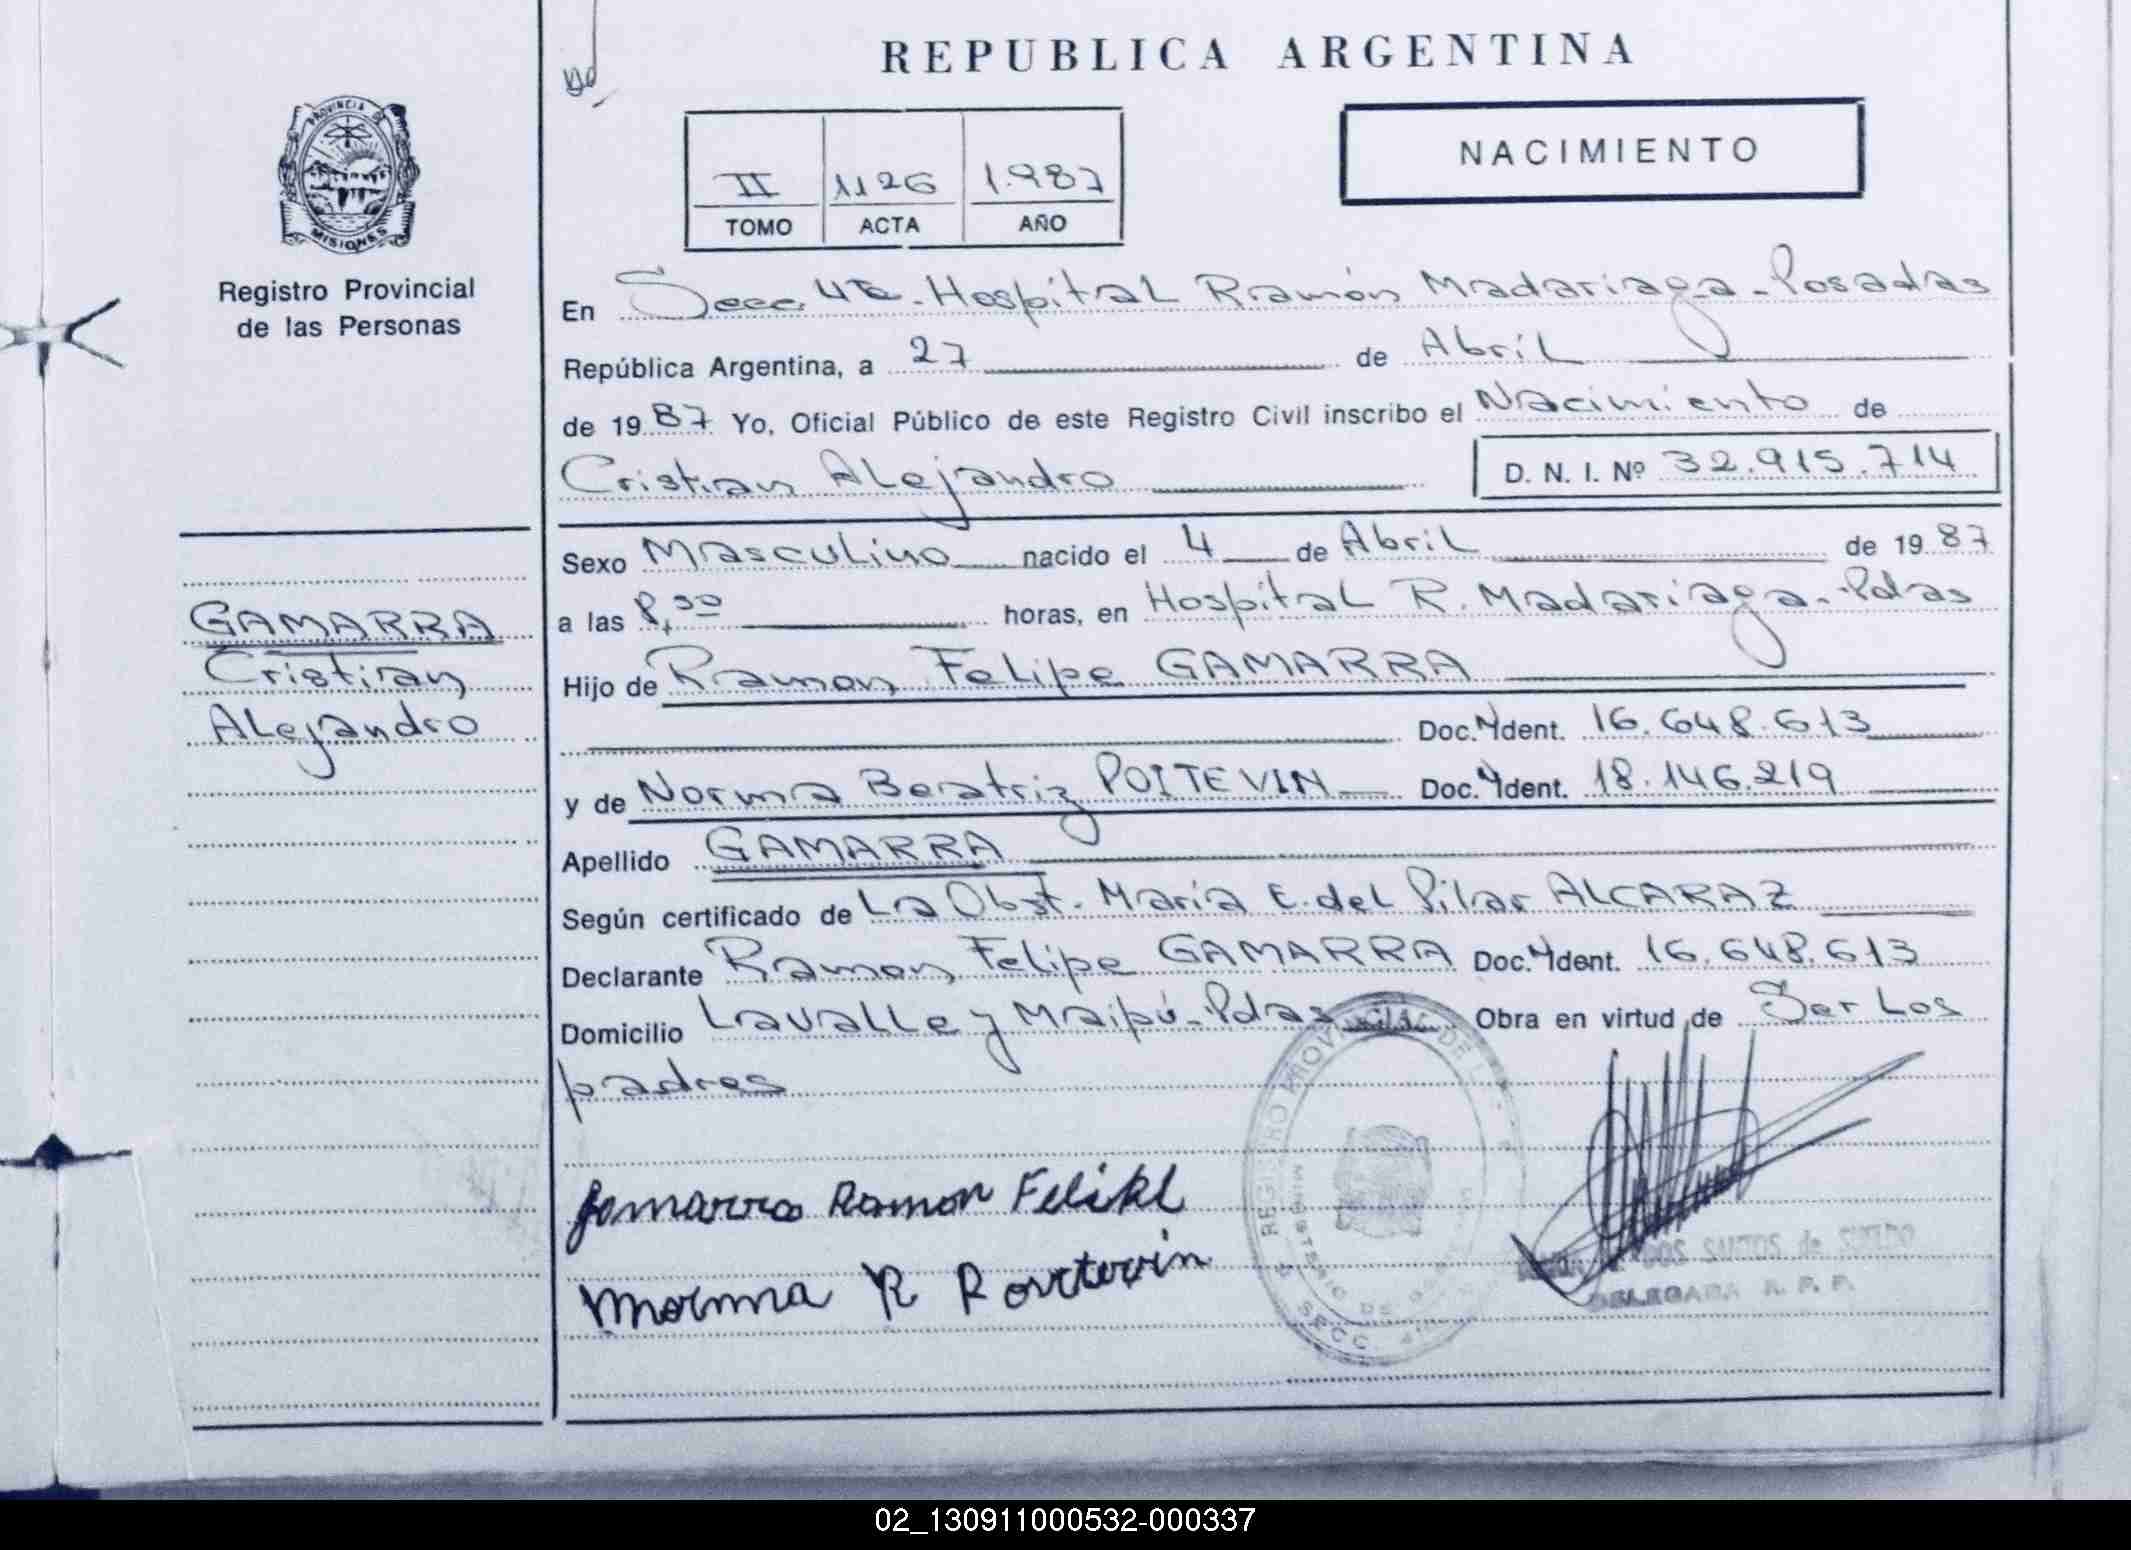 REPUBLICA ARGENTINA
PROVINCIA DE
MISIONES
Registro Provincial
de las Personas
II 1126 1.987
TOMO ACTA AÑO
NACIMIENTO
En Secc 4ta - Hospital Ramón Madariaga - Posadas
República Argentina, a 27 de Abril
de 1987 Yo, Oficial Público de este Registro Civil inscribo el Nacimiento de
Cristian Alejandro D. N. I. Nº 32.915.714
Sexo Masculino nacido el 4 de Abril de 1987
a las 8,30 horas, en Hospital R. Madariaga - Pdas
Hijo de Ramon Felipe GAMARRA
Doc. Ident. 16.648.613
y de Norma Beatriz POITEVIN Doc. Ident. 18.146.219
Apellido GAMARRA
Según certificado de La Obst. María E. del Pilar ALCARAZ
Declarante Ramon Felipe GAMARRA Doc. Ident. 16.648.613
Domicilio Lavalle y Maipú - Pdas Obra en virtud de Ser Los
padres
GAMARRA
Cristian
Alejandro
Gamarra Ramon
Norma
REGISTRO PROVINCIAL DE L
MINISTERIO DE
SECC. 4
SANTOS de
DELEGADA R. P. P.
02_130911000532-000337